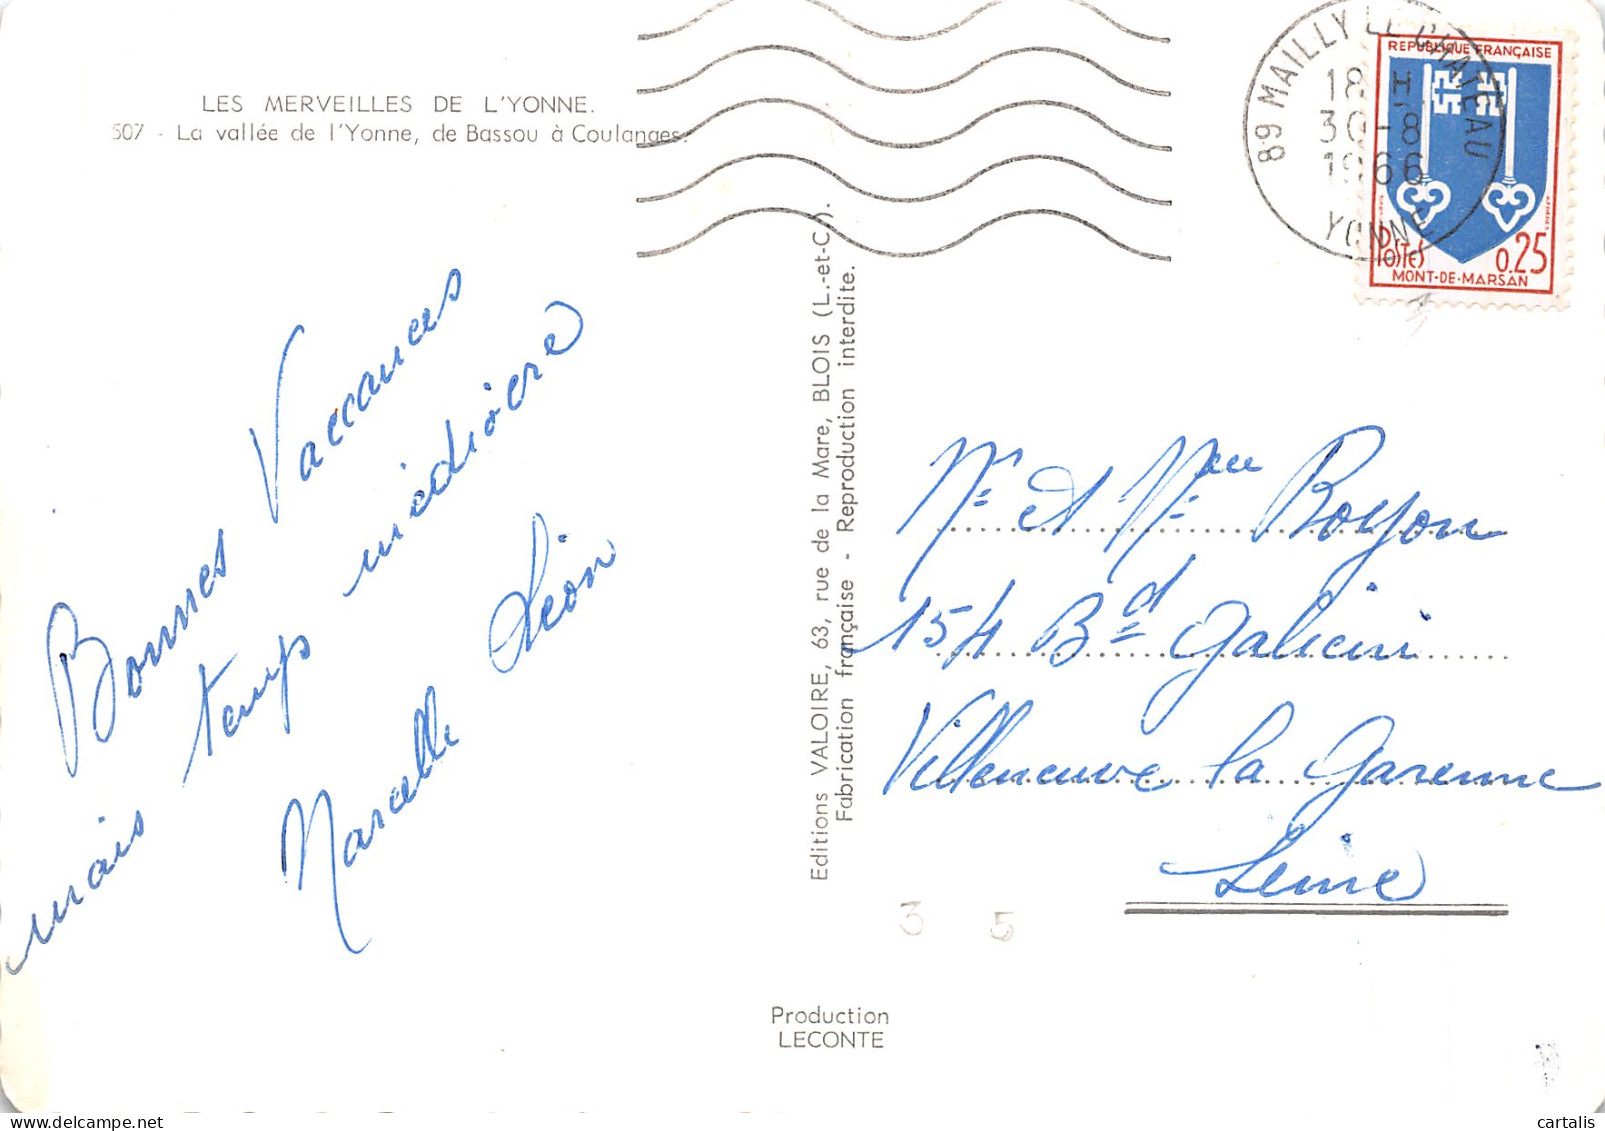 LES MERVEILLES DE L'YONNE.
507 - La vallée de l'Yonne, de Bassou à Coulanges.
Bonnes Vaccances
mais temps médiocre
Marcelle Léon
Editions VALOIRE, 63, rue de la Mare, BLOIS (L.-et-C.).
Fabrication française - Reproduction interdite.
89 MAILLY LE CHATEAU
18 H
30-8
1966
YONNE
REPUBLIQUE FRANÇAISE
POSTES 0,25
MONT-DE-MARSAN
Mr et Mme Royon
154 Bd Galieni
Villeneuve la Garenne
Seine
3 5
Production
LECONTE
cartalis